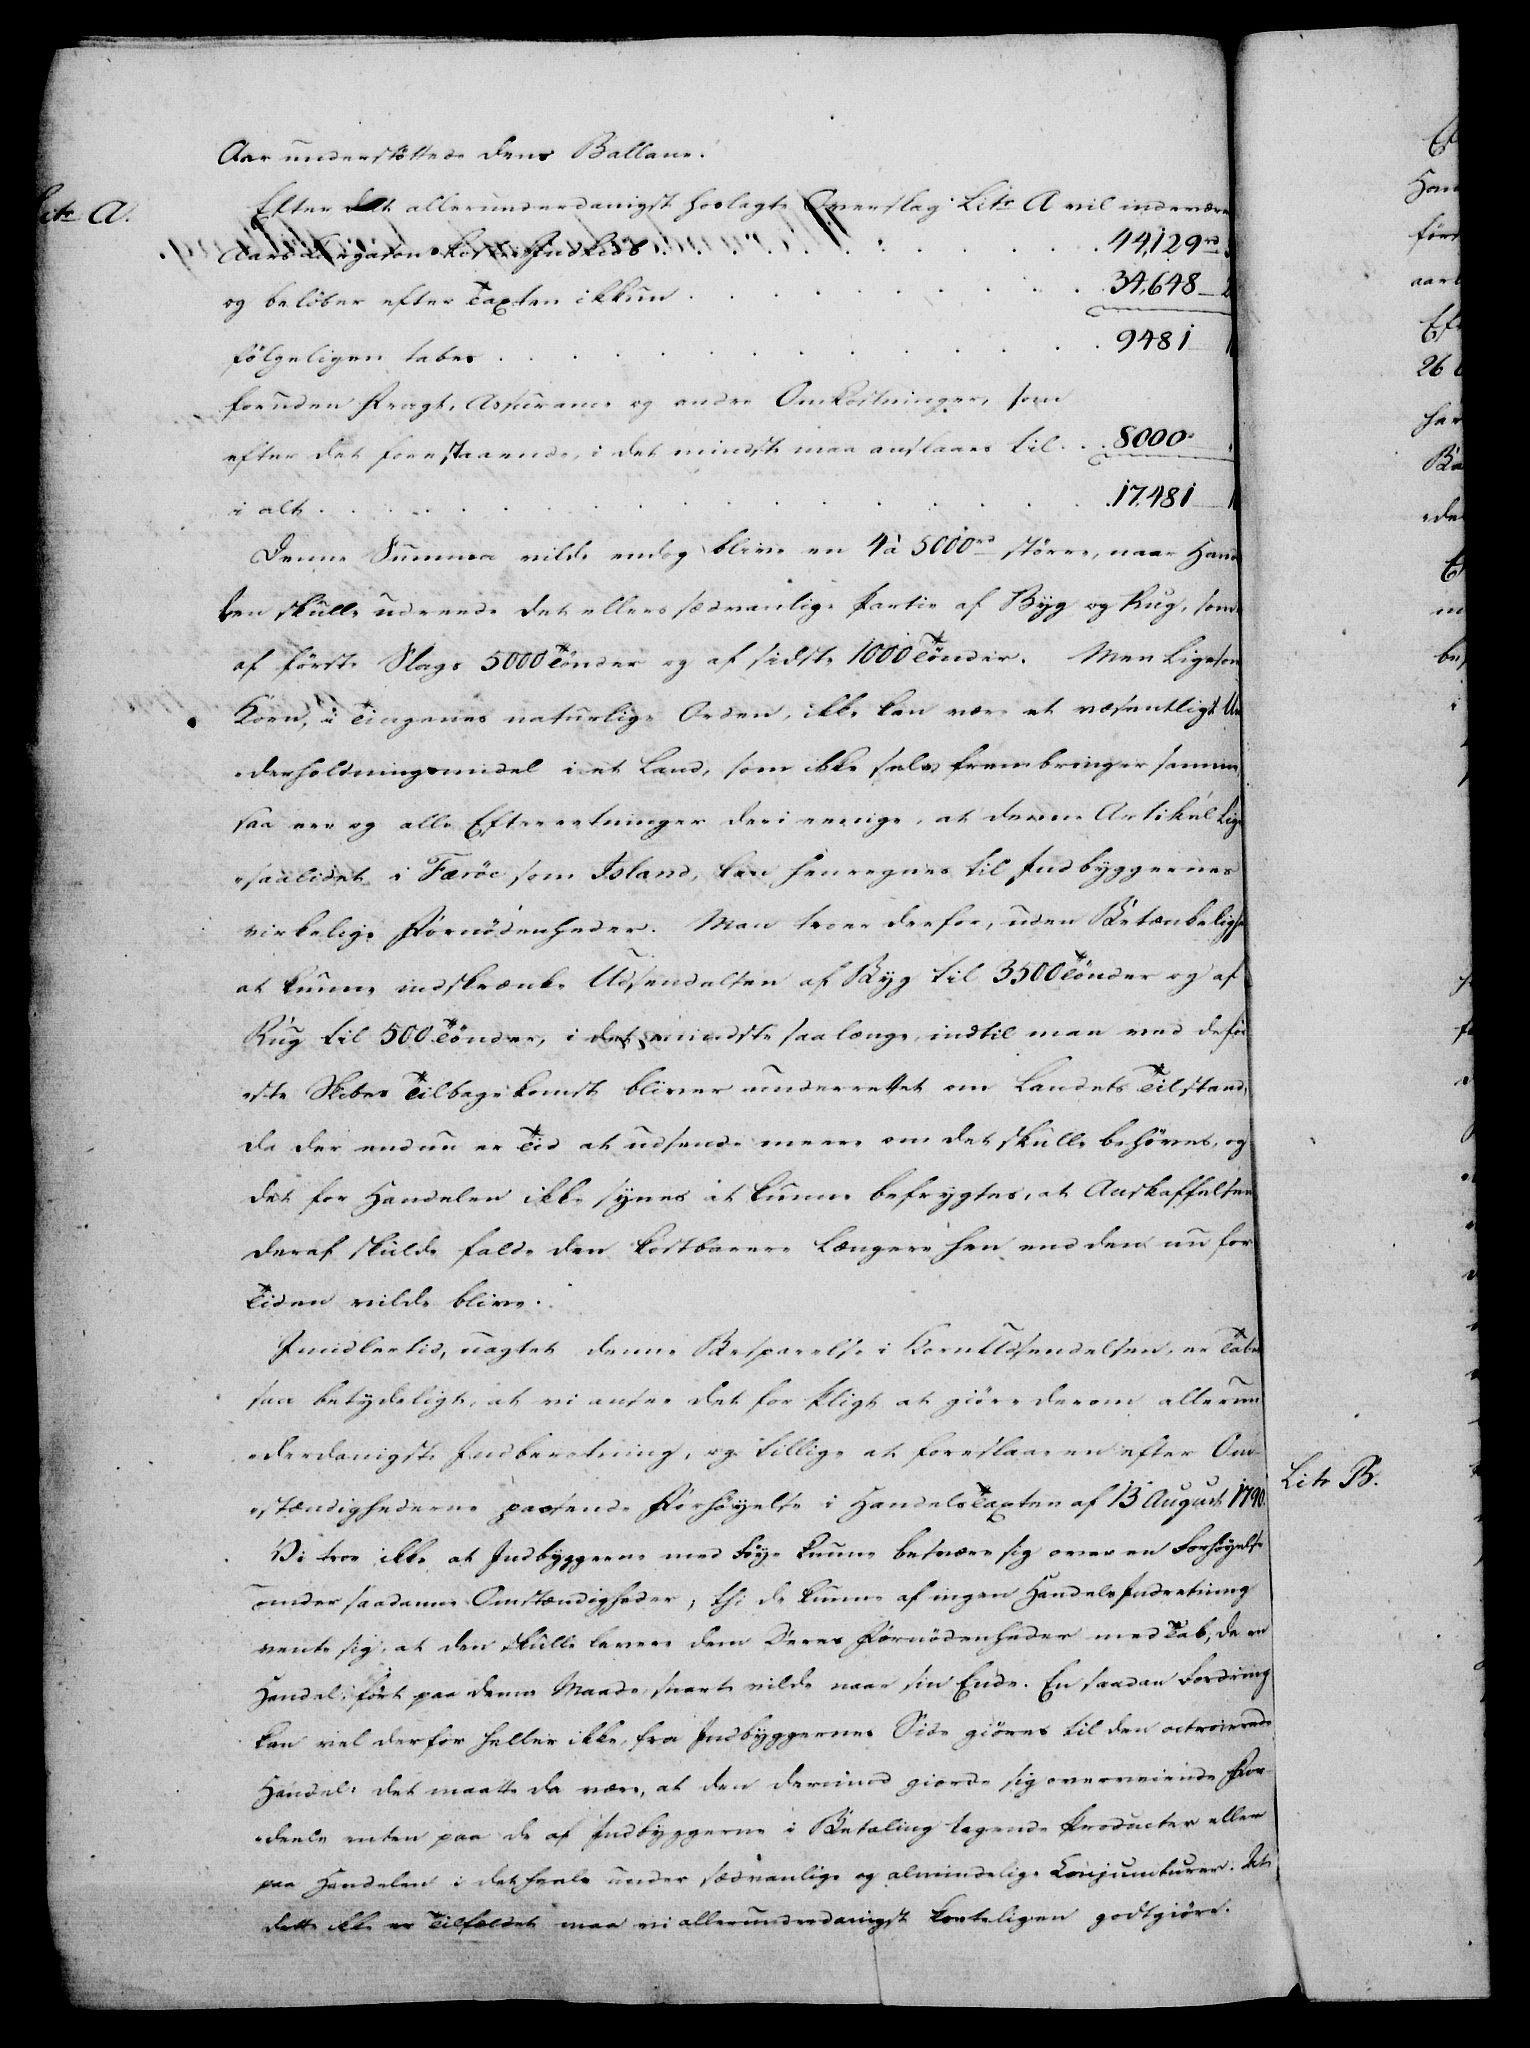 Aar understøttede dens Ballance.
Litr A.
Efter det allerunderdanigst hoslagte Overslag Litr A vil indevære
Aars Cargaison koste Indkiøb . . . 44,129 rd
og beløber efter Taxten ikkun . . . 34,648
følgeligen tabes . . . 9481
foruden Fragt, Assurance og andre Omkostninger, som
efter det forestaaende, i det mindste maa anslaaes til . . 8000
i alt . . . 17,481
Denne Summa vilde endog blive en 4 à 5000 rd større, naar Hand
len skulle udreede det ellers sædvanlige Partie af Byg og Rug, som
af første Slags 5000 Tønder og af sidste 1000 Tønder. Men ligesom
Korn, i Tingenes naturlige Orden, ikke kan være et væsentligt Un
derholdningsmidel i et Land, som ikke selv frembringer samme,
saa ere og alle Efterretninger deri eenige, at denne Artikel lige
saalidet i Færöe som Island, kan henregnes til Indbyggernes
virkelige Fornødenheder. Man troer derfor, uden Betænkelighe
at kunne indskrænke Udsendelsen af Byg til 3500 Tønder og af
Rug til 500 Tønder, i det mindste saa længe, indtil man med de før
ste Skibes Tilbagekomst bliver underrettet om Landets Tilstand,
da der endnu er Tid at udsende meere om det skulle behøves, og
det for Handelen ikke synes at kunne befrygtes, at Anskaffelsen
deraf skulde falde den kostbarere længere hen end den nu for
Tiden vilde blive.
Imidlertid, uagtet denne Besparelse i KornUdsendelsen, er Tabet
saa betydeligt, at vi ansee det for Pligt at giøre derom allerun
derdanigst Indberetning, og tillige at foreslaae en efter Om
stændighederne passende Forhøyelse i HandelsTaxten af 13 August 1790.
Litr B.
Vi troe ikke at Indbyggerne med Føye kunne besvære sig over en Forhøyelse
under saadanne Omstændigheder, thi de kunne af ingen HandelsIndretning
vente sig, at den skulle levere dem deres Fornødenheder med Tab, da en
Handel, ført paa denne Maade, snart vilde naae sin Ende. En saadan Fordring
kan vel derfor heller ikke, fra Indbyggernes Side giøres til den octroierede
Handel: det maatte da være, at den derimod giorde sig overveiende For
deele enten paa de af Indbyggerne i Betaling tagende Producter eller
paa Handelen i det heele under sædvanlige og almindelige Conjuncturer. At
dette ikke er Tilfældet maa vi allerunderdanigst korteligen godtgiøre.